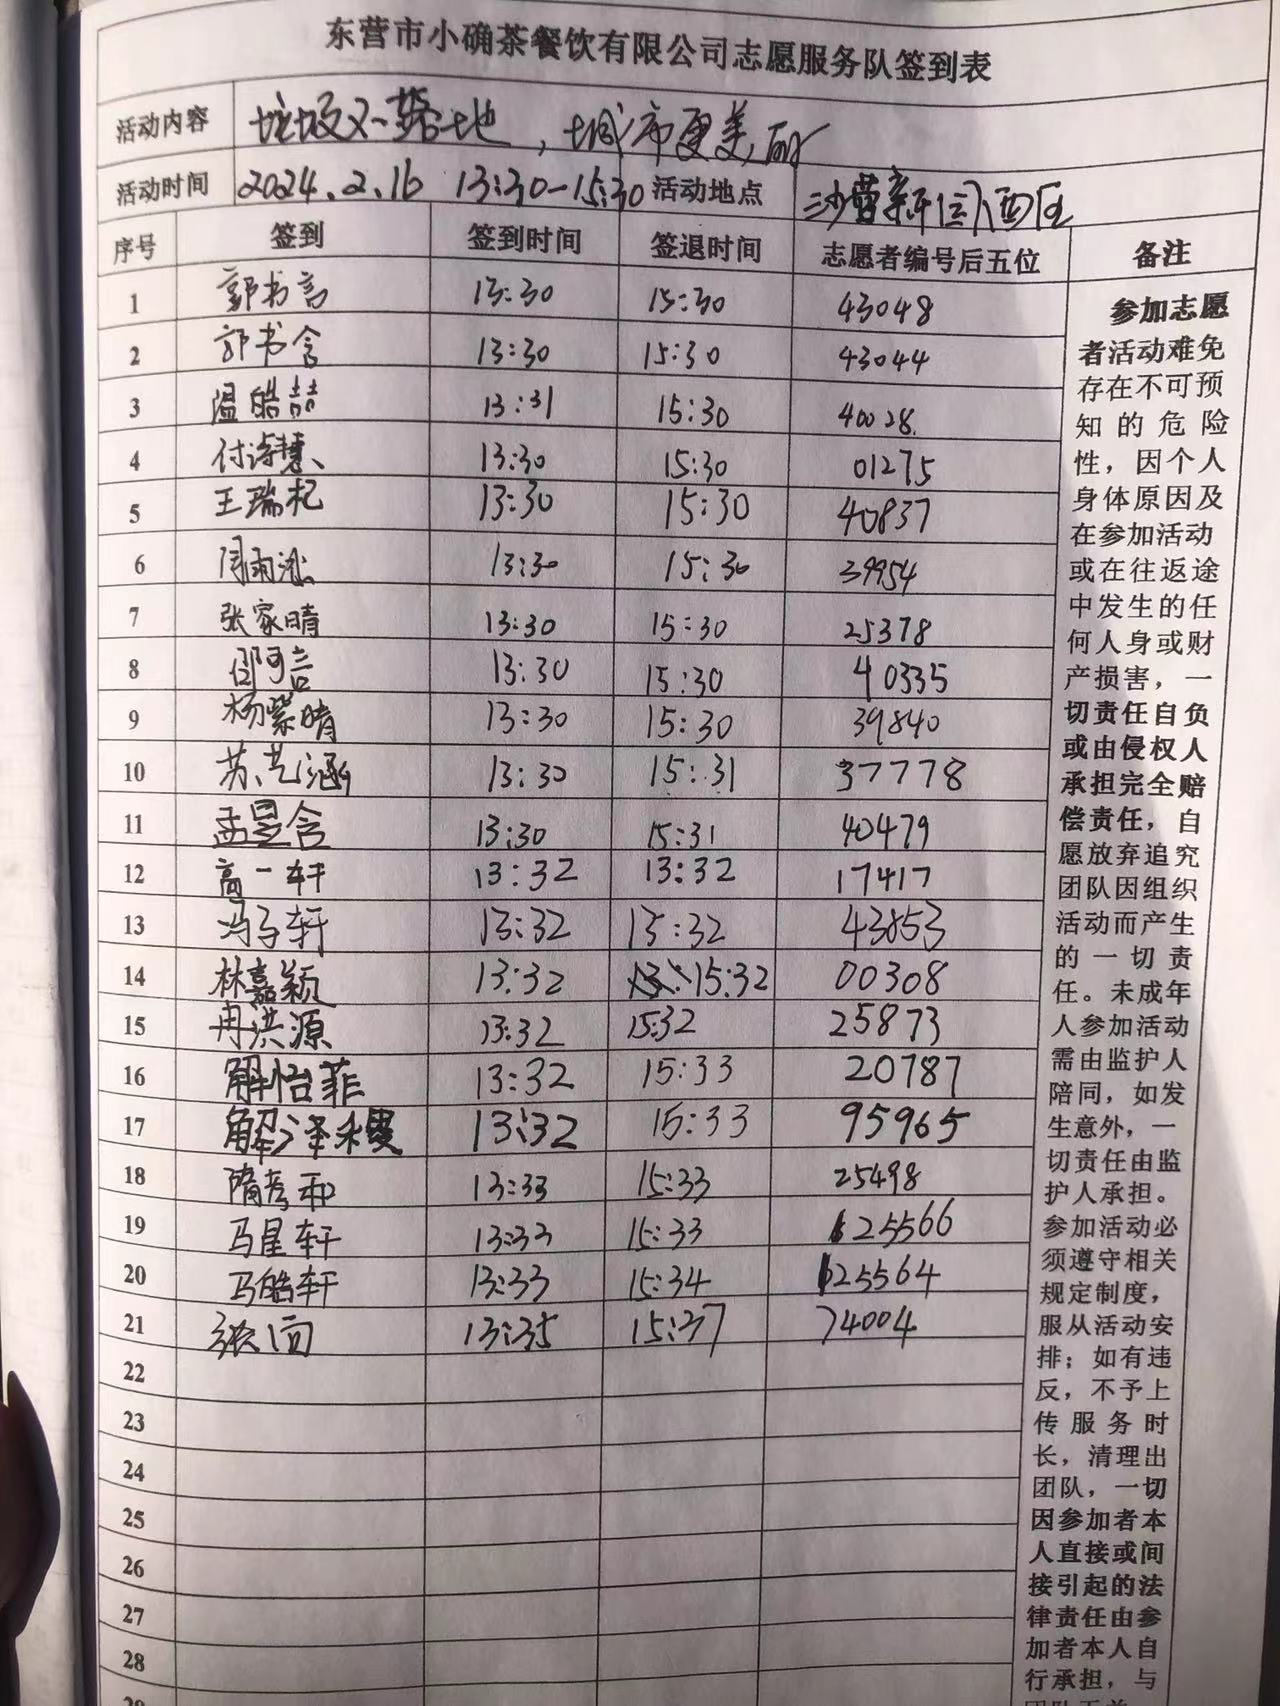 东营市小确茶餐饮有限公司志愿服务队签到表
活动内容 垃圾不落地，城市更美丽
活动时间 2024.2.16 13:30-15:30 活动地点 沙营新信八西区
序号 签到 签到时间 签退时间 志愿者编号后五位 备注
1 郭书言 13:30 15:30 43048
2 郭书含 13:30 15:30 43044
3 温皓喆 13:31 15:30 40028.
4 付诗慧 13:30 15:30 01275
5 王瑞杞 13:30 15:30 40837
6 周雨 13:30 15:30 39954
7 张家晴 13:30 15:30 25378
8 邵可言 13:30 15:30 40335
9 杨紫晴 13:30 15:30 39840
10 苏艺涵 13:30 15:31 37778
11 孟昱含 13:30 15:31 40479
12 高一轩 13:32 13:32 17417
13 冯子轩 13:32 15:32 43853
14 林嘉颖 13:32 15:32 00308
15 冉洪源 13:32 15:32 25873
16 解怡菲 13:32 15:33 20787
17 解泽稷 13:32 15:33 95965
18 隋彦和 13:33 15:33 25498
19 马星轩 13:33 15:33 25566
20 马皓轩 13:33 15:34 25564
21 张 13:35 15:37 74004
22
23
24
25
26
27
28
参加志愿
者活动难免
存在不可预
知的危险
性，因个人
身体原因及
在参加活动
或在往返途
中发生的任
何人身或财
产损害，一
切责任自负
或由侵权人
承担完全赔
偿责任，自
愿放弃追究
团队因组织
活动而产生
的一切责
任。未成年
人参加活动
需由监护人
陪同，如发
生意外，一
切责任由监
护人承担。
参加活动必
须遵守相关
规定制度，
服从活动安
排；如有违
反，不予上
传服务时
长，清理出
团队，一切
因参加者本
人直接或间
接引起的法
律责任由参
加者本人自
行承担，与